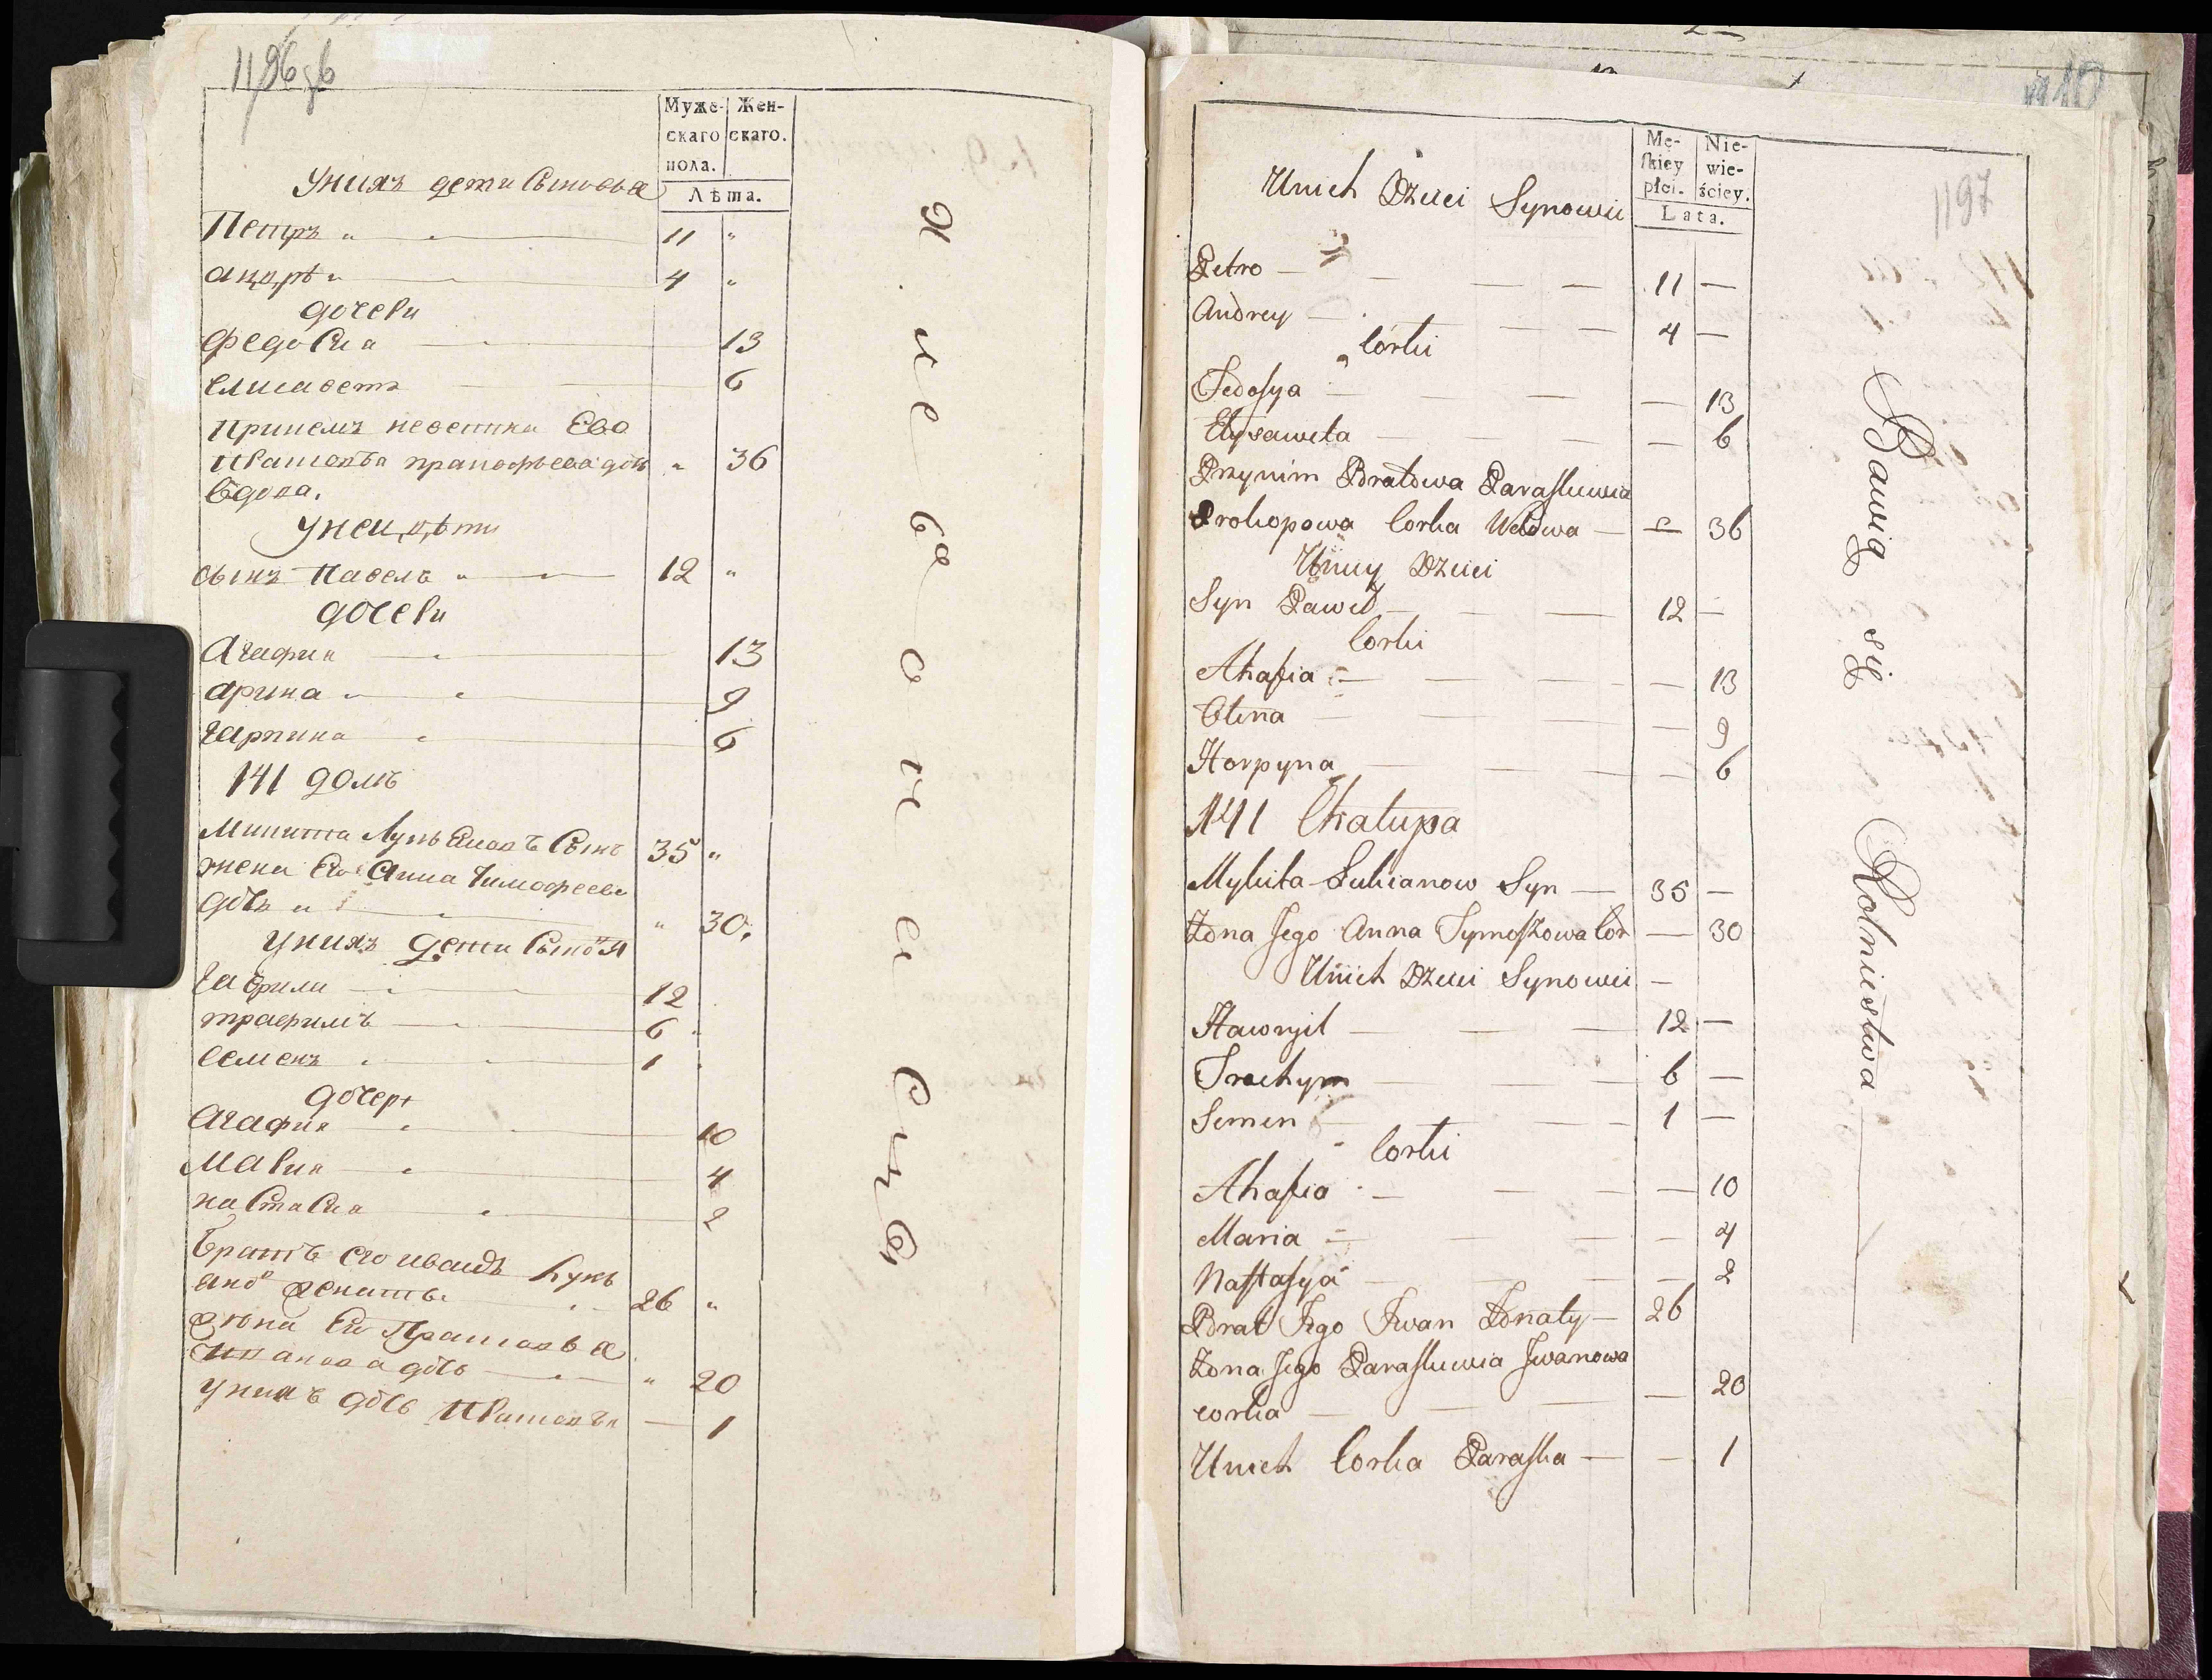 1196 зв
Муже- Жен-
скаго скаго.
пола.
Лѣта.
у них дети Сыновья
Петръ 11 "
андрѣ 4 "
дочери
федосия 13
елисаветъ 6
При немъ невестка Ево
Прасковья прокофьева дочь " 36
вдова.
у неи дѣти
сынъ Павелъ 12 "
дочери
Агафия 13
арина 9
гарпина 6
141 домъ
Микита Лукьяновъ Сынъ 35 "
жена Его Анна Тимофеева
дочь " 30.
у нихъ дети Сыновя
гаврила 12
трафимъ 6
семенъ 1
дочери
Агафия 10
Мария 4
настасия 2
братъ его иванъ Лукь
яно женатъ 26 "
жена Ево Прасковья
Иванова дочь " 20
у нихъ дочь Прасковья — 1
10
1197
Mę- Nie-
skiey wie-
płci. ściey.
Lata.
Unich Dzieci Synowie
Petro 11 —
Andrey 4 —
Corki
Fedosya — 13
Elysaweta — 6
Przynim Bratowa Paraskiewia
Prokopowa Corka Wdowa — 36
Uniey Dzieci
Syn Paweł 12 —
Corki
Ahafia — 13
Olena — 9
Horpyna — 6
141 Chalupa
Mykita Lukianow Syn — 35 —
Żona Jego Anna Tymoszowa Cor — 30
Unich Dzieci Synowie —
Hawryił 12 —
Trochym 6 —
Semen 1 —
Corki
Ahafia — 10
Maria — 4
Nastasya — 2
Brat Jego Iwan Żonaty — 26
Żona Jego Paraskiewia Iwanowa
corka — 20
Unich Corka Paraska — — 1
Bawią się Rolnictwa